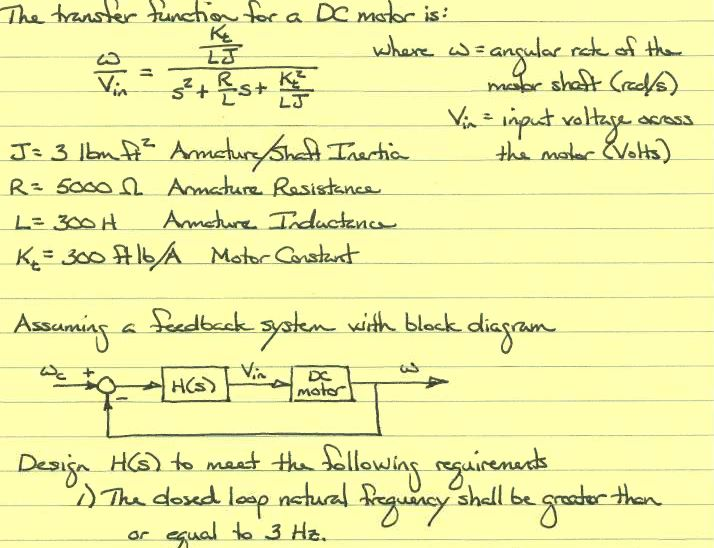 The transfer function for a DC motor is:
ω/Vin = (Kt/LJ) / (s² + (R/L)s + Kt²/LJ)
where ω = angular rate of the
motor shaft (rad/s)
Vin = input voltage across
the motor (Volts)
J = 3 lbm ft² Armature/Shaft Inertia
R = 5000 Ω Armature Resistance
L = 300 H Armature Inductance
Kt = 300 ft lb/A Motor Constant
Assuming a feedback system with block diagram
ωc + - H(s) Vin DC motor ω
Design H(s) to meet the following requirements
1) The closed loop natural frequency shall be greater than
or equal to 3 Hz.